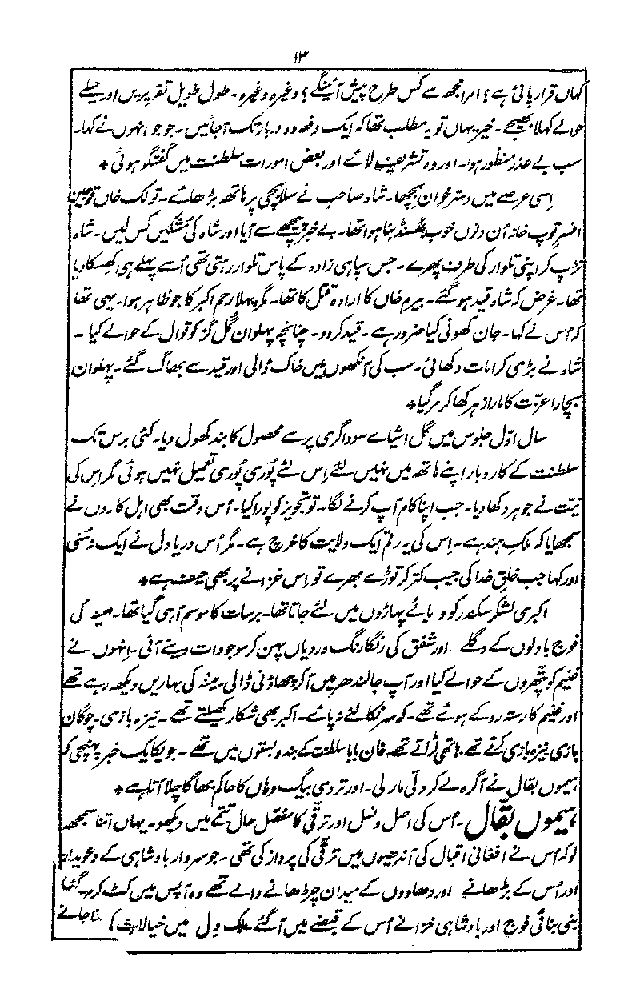 ۱۳
کہاں قرار پائی ہے؟ امرا مجھ سے کس طرح پیش آئینگے؟ وغیرہ وغیرہ۔ طول طویل تقریریں اور حیلے
حوالے کہلا بھیجے۔ خیر یہاں تو یہ مطلب تھا کہ ایک دفعہ وہ دربار تک آجائیں۔ جو جو انہوں نے کہا۔
سب بے عذر منظور ہوا۔ اور وہ تشریف لائے اور بعض امورات سلطنت میں گفتگو ہوئی *
اسی عرصے میں دسترخوان بچھا۔ شاہ صاحب نے سلاپچی پر ہاتھ بڑھائے۔ تولک خاں قوچین
افسر توپ خانہ اُن دنوں خوب بھسنڈ بنا ہوا تھا۔ بے خبر پیچھے سے آیا اور شاہ کی مشکیں کس لیں۔ شاہ
تڑپ کر اپنی تلوار کی طرف پھرے۔ جس سپاہی زادہ کے پاس تلوار رہتی تھی اُسے پہلے ہی کھسکا دیا
تھا۔ غرض کہ شاہ قید ہو گئے۔ بیرم خاں کا ارادہ قتل کا تھا۔ مگر پہلا رحم اکبر کا جو ظاہر ہوا۔ یہی تھا
کہ اُس نے کہا۔ جان کھونی کیا ضرور ہے۔ قید کر دو۔ چنانچہ پہلوان گل گز کوتوال کے حوالے کیا۔
شاہ نے بڑی کرامات دکھائی۔ سب کی آنکھوں میں خاک ڈالی اور قید سے بھاگ گئے۔ پہلوان
بیچارا عزت کا مارا زہر کھا کر مر گیا *
سال اول جلوس میں کل اشیائے سوداگری پر سے محصول کا بند کھول دیا۔ کئی برس تک
سلطنت کے کاروبار اپنے ہاتھ میں نہیں لئے اِس لئے پوری پوری تعمیل نہیں ہوئی مگر اس کی
نیت نے جوہر دکھا دیا۔ جب اپنا کام آپ کرنے لگا۔ تو تجویز کو پورا کیا۔ اُس وقت بھی اہل کاروں نے
سمجھایا کہ ملک ہند ہے۔ اس کی یہ رقم ایک ولایت کا خرچ ہے۔ مگر اُس دریا دل نے ایک نہ سنی
اور کہا جب خلق خدا کی جیب کتر کر توڑے بھرے تو اِس خزانے پر بھی حیف ہے *
اکبری لشکر سکندر کو دبائے پہاڑوں میں لئے جاتا تھا۔ برسات کا موسم آہی گیا تھا۔ مینہ کی
فوج بادلوں کے دگلے اور شفق کی رنگا رنگ وردیاں پہن کر موجودات دینے آئی۔ انہوں نے
غنیم کو پتھروں کے حوالے کیا اور آپ جالندھر میں آکر چھاؤنی ڈالی۔ مینہ کی بہاریں دیکھ رہے تھے
اور غنیم کا رستہ روکے ہوئے تھے۔ کہ سر نکالنے نہ پائے۔ اکبر بھی شکار کھیلتے تھے۔ نیزہ بازی۔ چوگان
بازی تیر اندازی کرتے تھے۔ ہاتھی لڑاتے تھے۔ خان بابا سلطنت کے بندوبستوں میں تھے۔ جو یکایک خبر پہنچی کہ
ہیموں بقال نے آگرہ لے کر دلی مار لی۔ اور تردی بیگ وہاں کا حاکم بھاگا چلا آتا ہے *
ہیموں بقال۔ اُس کی اصل و نسل اور ترقی کا مفصل حال تتمے میں دیکھو۔ یہاں اتنا سمجھ
لو کہ اُس نے افغانی اقبال کی آندھیوں میں ترقی کی پرواز کی تھی۔ جو سردار بادشاہی کے دعویدار
اور اُس کے بڑھانے اور دھاووں کے میدان چڑھانے والے تھے وہ آپس میں کٹ کر مر گئے
بنی بنائی فوج اور بادشاہی خزانے اُس کے قبضے میں آگئے ملک دل میں خیالات کا بنا جانے